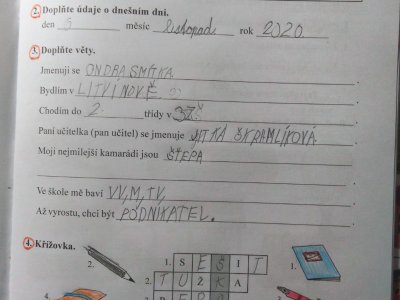 2. Doplňte údaje o dnešním dni.
den 5 měsíc listopad rok 2020
3. Doplňte věty.
Jmenuji se ONDRA SMÍTKA
Bydlím v LITVINOVĚ
Chodím do 2. třídy v 3ZŠ
Paní učitelka (pan učitel) se jmenuje JITKA ŠKRAMLÍKOVÁ
Moji nejmilejší kamarádi jsou ŠTĚPA
Ve škole mě baví VV, M, TV,
Až vyrostu, chci být PODNIKATEL.
4. Křížovka.
1. S E Š I T 1.
2.
2. T U Ž K A
4.